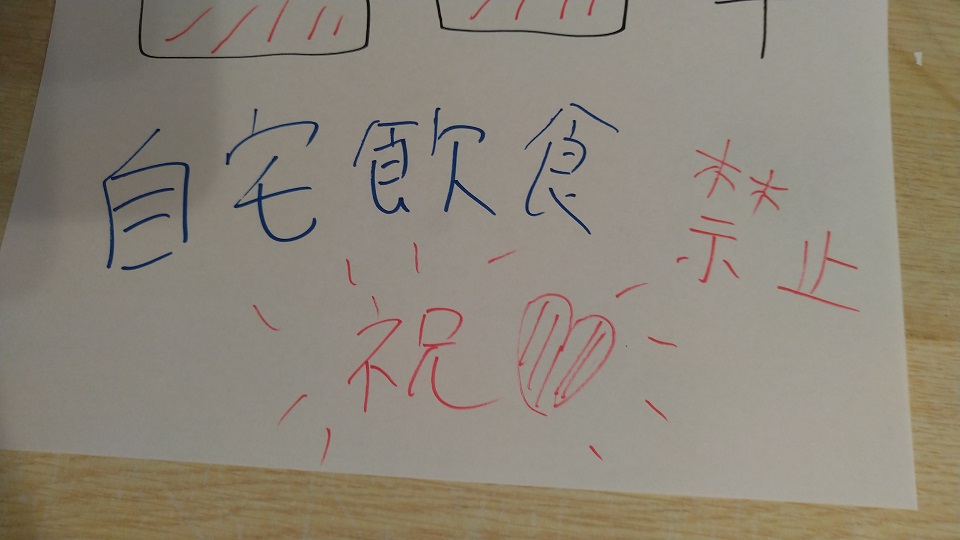 自宅飲食 禁止
祝♥